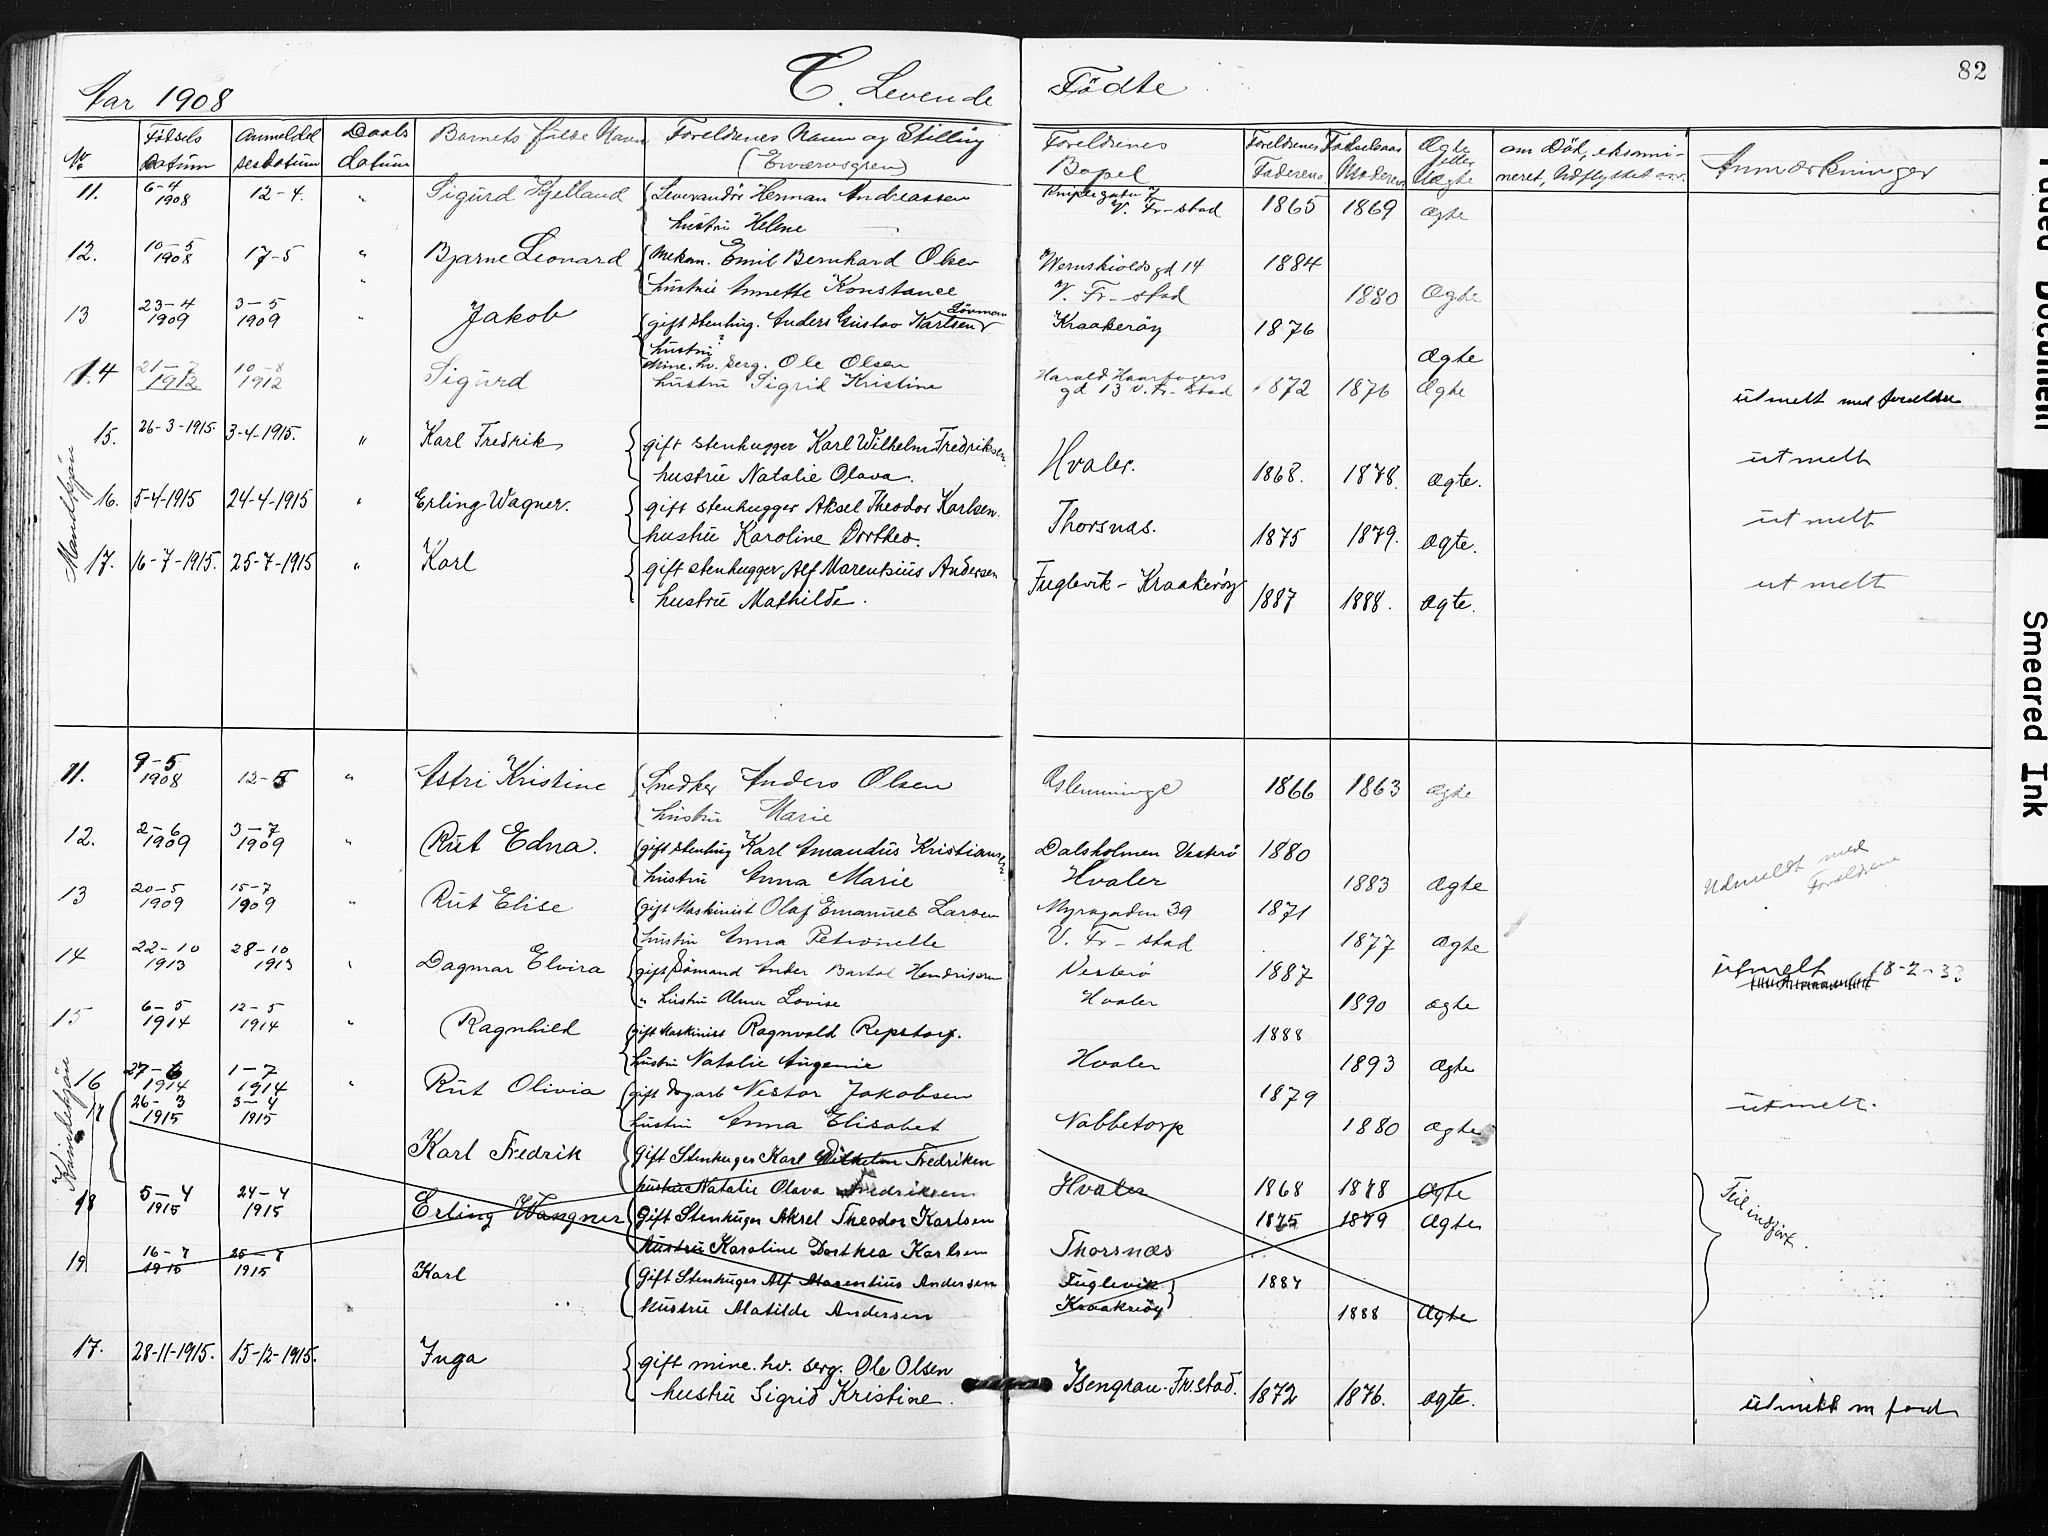 82
Aar 1908 C. Levende Födte
No Födsels Datum Anmeldelsesdatum Daabsdatum Barnets fulde Navn Foreldrenes Navn og Stilling (Erværvsgren) Foreldrenes Bopel Foreldrenes Födselsaar Faderens Moderens Ægte eller Uægte om Död, Udflyttet Anmærkninger
Mandkjön
11. 6-4 1908 12-4. " Sigurd Kjelland Leverandör Herman Andreassen V. Fr-stad 1865 1869 Ægte
hustru Helene
12. 10-5 1908 17-5 " Bjarne Leonard Mekan. Emil Bernhard Olsen Wernskioldsgd 14 1884
" hustru Annette Konstance V. Fr-stad 1880 Ægte
13 23-4 1909 3-5 1909 " Jakob gift stenhug. Anders Gustav Karlsen Kraakeröy 1876
hustru ? Ægte
14 21-7 1912 10-8 1912 Sigurd Mine. hv. serg. Ole Olsen Harald Haarfagers 1872 1876 Ægte
hustru Sigrid Kristine gd 13 V. Fr-stad utmelt med foreldre
15. 26-3-1915 3-4-1915. " Karl Fredrik gift stenhugger Karl Wilhelm Fredriksen.
hustru Natalie Olava. Hvaler. 1868. 1878. Ægte. utmelt
16. 5-4-1915 24-4-1915 " Erling Wagner. gift stenhugger Aksel Theodor Karlsen.
hustru Karoline Dorthea. Thorsnæs. 1875 1879. Ægte. utmelt
17. 16-7-1915. 25-7-1915 " Karl gift stenhugger Alf Marentsius Andersen
hustru Mathilde. Fuglevik - Kraakeröy 1887 1888. Ægte. utmelt
Kvindekjön
11. 9-5 1908 12-5 " Astri Kristine Snedker Anders Olsen 1866 1863 Ægte
hustru Marie
12. 2-6 1909 3-7 1909 " Rut Edna. gift stenhug Karl Amandus Kristiansen Dalsholmen Vesterö 1880
hustru Anna Marie Hvaler 1883 Ægte Udmeldt med Foreldrene
13 20-5 1909 15-7 1909 " Rut Elise gift Maskinist Olaf Emanuel Larsen Myragaden 39 1871
hustru Anna Petronelle V. Fr-stad 1877 Ægte
14 22-10 1913 28-10 1913 " Dagmar Elvira gift Sömand Ander Bartol Hendriksen Vesterö 1887
" hustru Alma Lovise Hvaler 1890 Ægte utmelt 18-2-33
15 6-5 1914 12-5 1914 " Ragnhild gift Maskinist Ragnvald Repstorp. 1888
hustru Natalie Augenie Hvaler 1893 Ægte
16 27-6 1914 1-7 1914 " Rut Olivia gift Dagarb Nestor Jakobsen 1879
hustru Anna Elisabet Nabbetorp 1880 Ægte utmelt.
17 26-3 1915 3-4 1915 Karl Fredrik Gift Stenhuger Karl Wilhelm Fredriken
hustru Natalie Olava Fredriksen Hvaler 1868 1878 Ægte
18 5-4 1915 24-4 1915 Erling Wangner Gift Stenhuger Aksel Theodor Karlsen 1875 1879 Ægte
hustru Karoline Dorthea Karlsen Thorsnæs Feil indfört.
19 16-7 1915 25-7 1915 Karl Gift Stenhuger Alf Marentius Andersen Fuglevik 1887
hustru Matilde Andersen Kraakröy 1888 Ægte
17. 28-11-1915. 15-12-1915. Inga gift mine. hv. serg. Ole Olsen
hustru Sigrid Kristine. Isengrau. Fr.stad. 1872 1876. Ægte. utmelt m forel
Faded Document
Smeared Ink